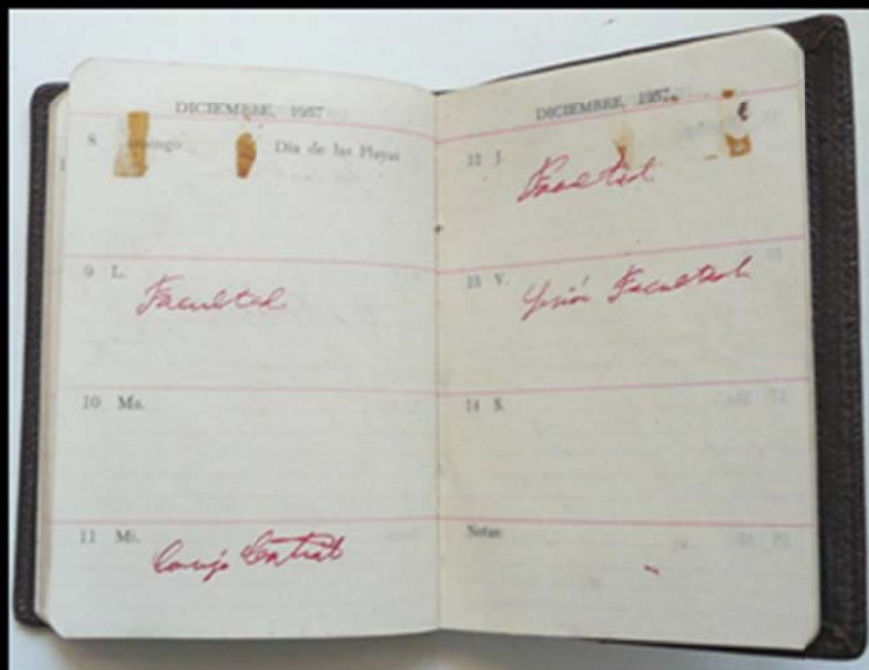 DICIEMBRE, 1957
8 Día de las Playas
9 L.
Facultad
10 Ma.
11 Mi.
Consejo Central
DICIEMBRE, 1957
12 J.
Facultad
13 V.
Sesión Facultad
14 S.
Notas